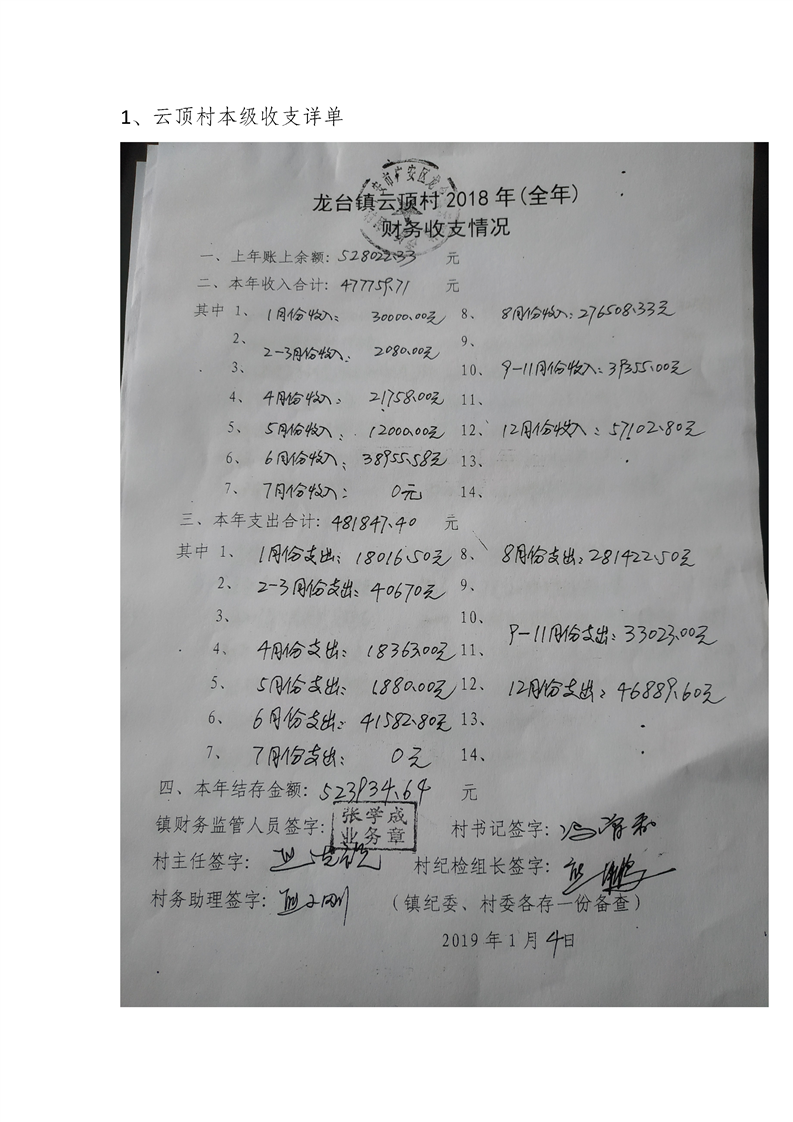 1、云顶村本级收支详单
龙台镇云顶村2018年(全年)
财务收支情况
一、上年账上余额：528022.33 元
二、本年收入合计：477759.71 元
其中 1、 1月份收入： 30000.00元 8、 8月份收入：276508.33元
2、 2-3月份收入： 2080.00元 9、
3、 10、 9-11月份收入：39355.00元
4、 4月份收入： 21758.00元 11、
5、 5月份收入： 12000.00元 12、 12月份收入：57102.80元
6、 6月份收入： 38955.58元 13、
7、 7月份收入： 0元 14、
三、本年支出合计：481847.40 元
其中 1、 1月份支出：18016.50元 8、 8月份支出：281422.50元
2、 2-3月份支出：40670元 9、
3、 10、 9-11月份支出：33023.00元
4、 4月份支出： 18363.00元 11、
5、 5月份支出： 1880.00元 12、 12月份支出：46889.60元
6、 6月份支出：41582.80元 13、
7、 7月份支出： 0元 14、
四、本年结存金额：523934.64 元
镇财务监管人员签字： 张学成 村书记签字：
业务章
村主任签字： 村纪检组长签字：
村务助理签字： （镇纪委、村委各存一份备查）
2019年1月4日